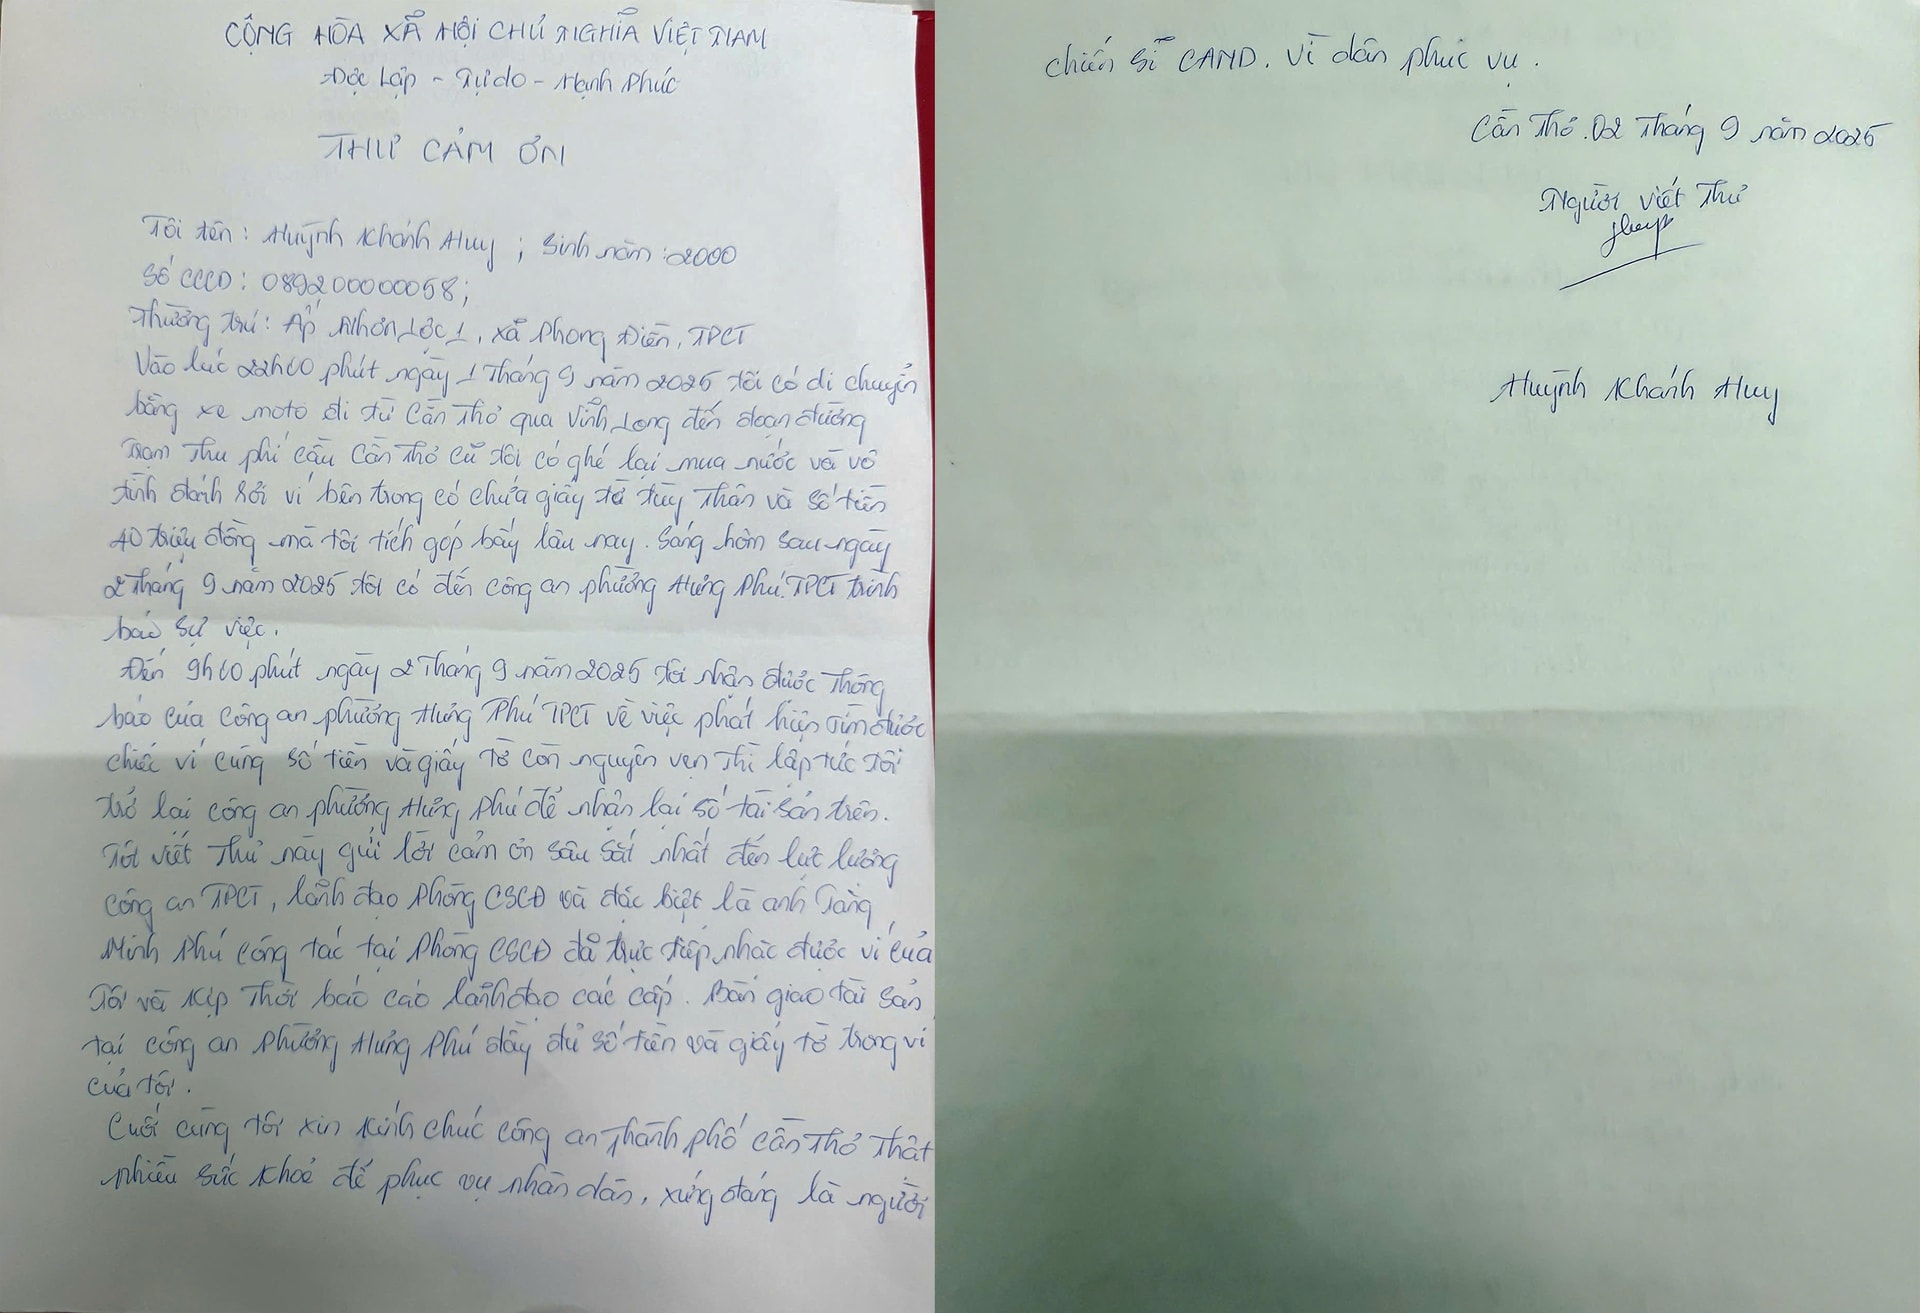 CỘNG HÒA XÃ HỘI CHỦ NGHĨA VIỆT NAM
Độc Lập - Tự do - Hạnh Phúc
THƯ CẢM ƠN
Tôi tên : Huỳnh Khánh Huy ; Sinh năm : 2000
Số CCCD : 089200000058;
Thường trú : Ấp Nhơn Lộc 1, xã Phong Điền, TPCT
Vào lúc 22h00 phút ngày 1 Tháng 9 năm 2025 tôi có di chuyển
bằng xe moto đi từ Cần Thơ qua Vĩnh Long đến đoạn đường
Trạm Thu phí cầu Cần Thơ cũ tôi có ghé lại mua nước và vô
tình đánh rơi ví bên trong có chứa giấy tờ tùy Thân và số tiền
40 triệu đồng mà tôi tích góp bấy lâu nay. Sáng hôm sau ngày
2 Tháng 9 năm 2025 tôi có đến công an phường Hưng Phú.TPCT trình
báo sự việc.
Đến 9h00 phút ngày 2 Tháng 9 năm 2025 tôi nhận được Thông
báo của Công an phường Hưng Phú TPCT về việc phát hiện tìm được
chiếc ví cùng số tiền và giấy tờ còn nguyên vẹn Thì lập tức tôi
trở lại công an phường Hưng Phú để nhận lại số tài sản trên.
Tôi viết Thư này gửi lời cảm ơn sâu sắt nhất đến lực lượng
công an TPCT, lãnh đạo Phòng CSCĐ và đặc biệt là anh Tăng
Minh Phú công tác tại Phòng CSCĐ đã trực tiếp nhặc được ví của
Tôi và Kịp Thời báo cáo lãnh đạo các cấp. Bàn giao tài sản
tại công an Phường Hưng Phú đầy đủ số tiền và giấy tờ trong ví
của tôi.
Cuối cùng tôi xin kính chúc công an Thành phố Cần Thơ Thật
nhiều sức khoẻ để phục vụ nhân dân, xứng đáng là người
chiến sĩ CAND. Vì dân phục vụ.
Cần Thơ.02 Tháng 9 năm 2025
Người viết Thư
Huy
Huỳnh Khánh Huy